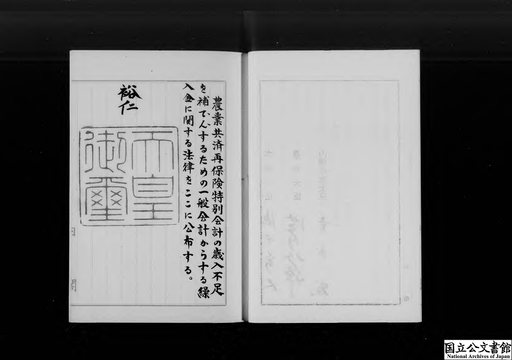 農業共済再保険特別会計の歳入不足
を補てんするための一般会計からする繰
入金に関する法律をここに公布する。
裕仁
天皇
御璽
国立公文書館
National Archives of Japan